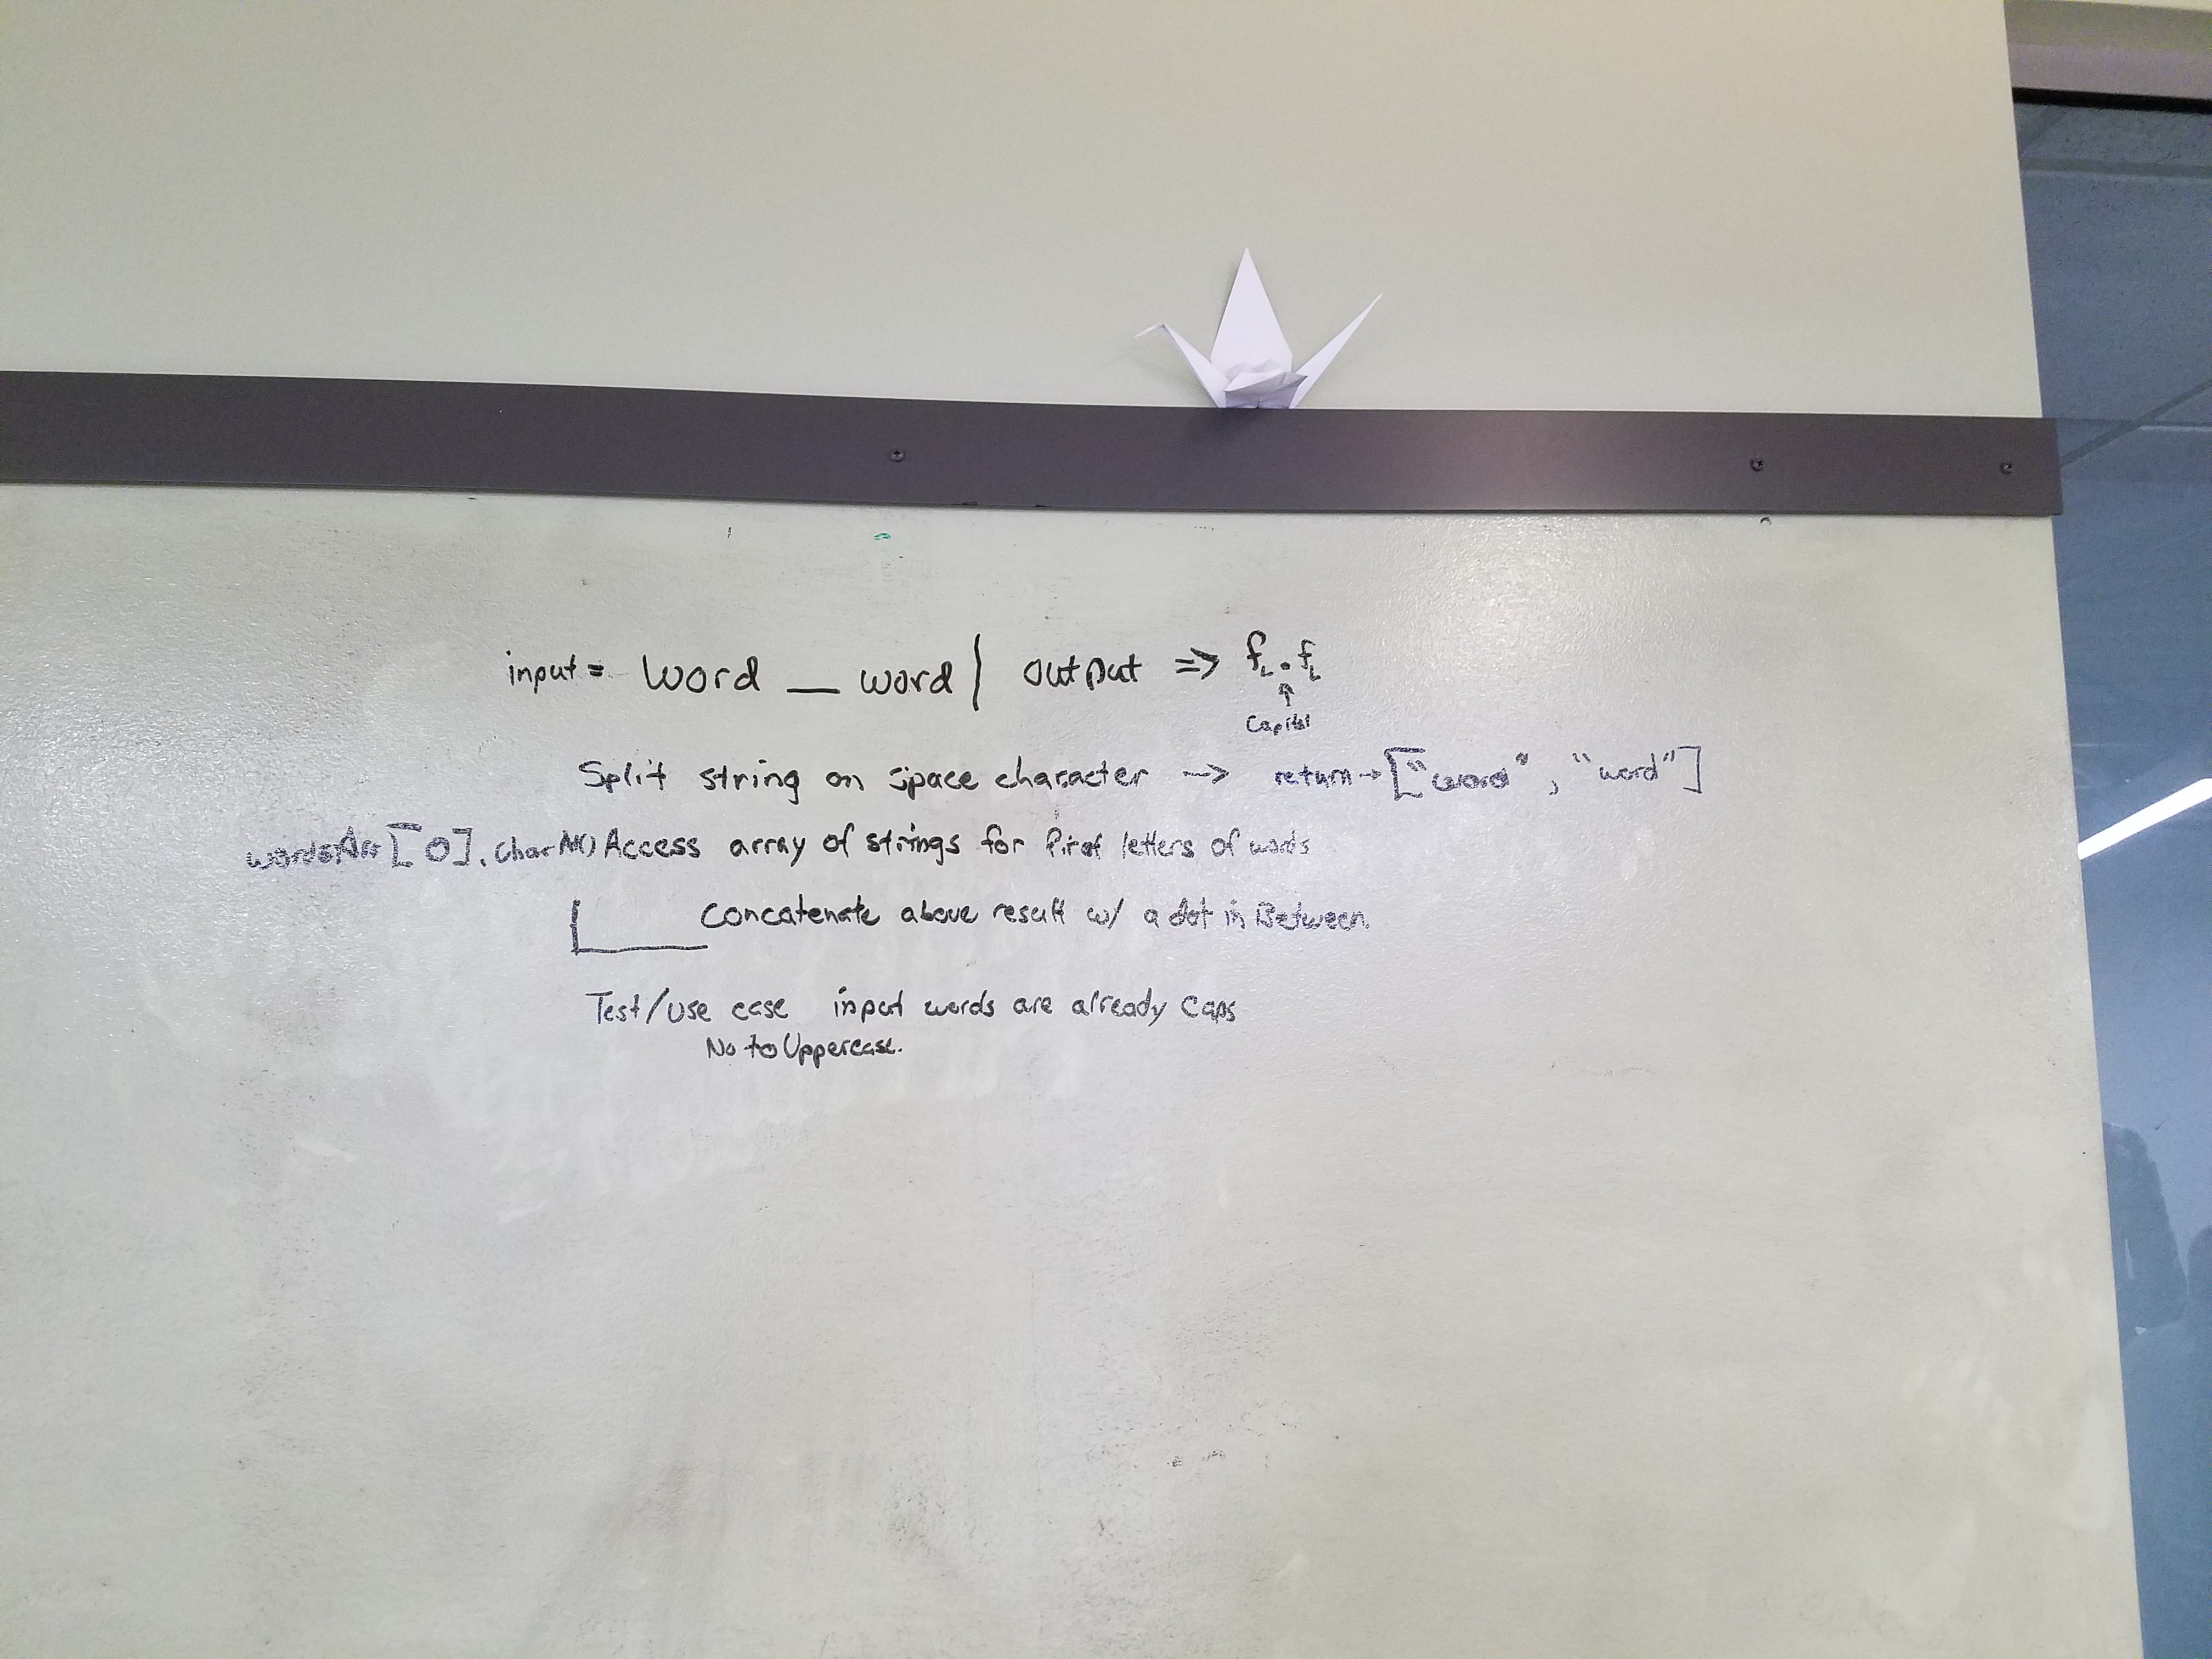 input = word _ word | output => fL . fL
↑
Capital
Split string on space character --> return → ["word", "word"]
wordsArr[0].charAt() Access array of strings for first letters of words
concatenate above result w/ a dot in Between.
Test/use case input words are already caps
No toUppercase.